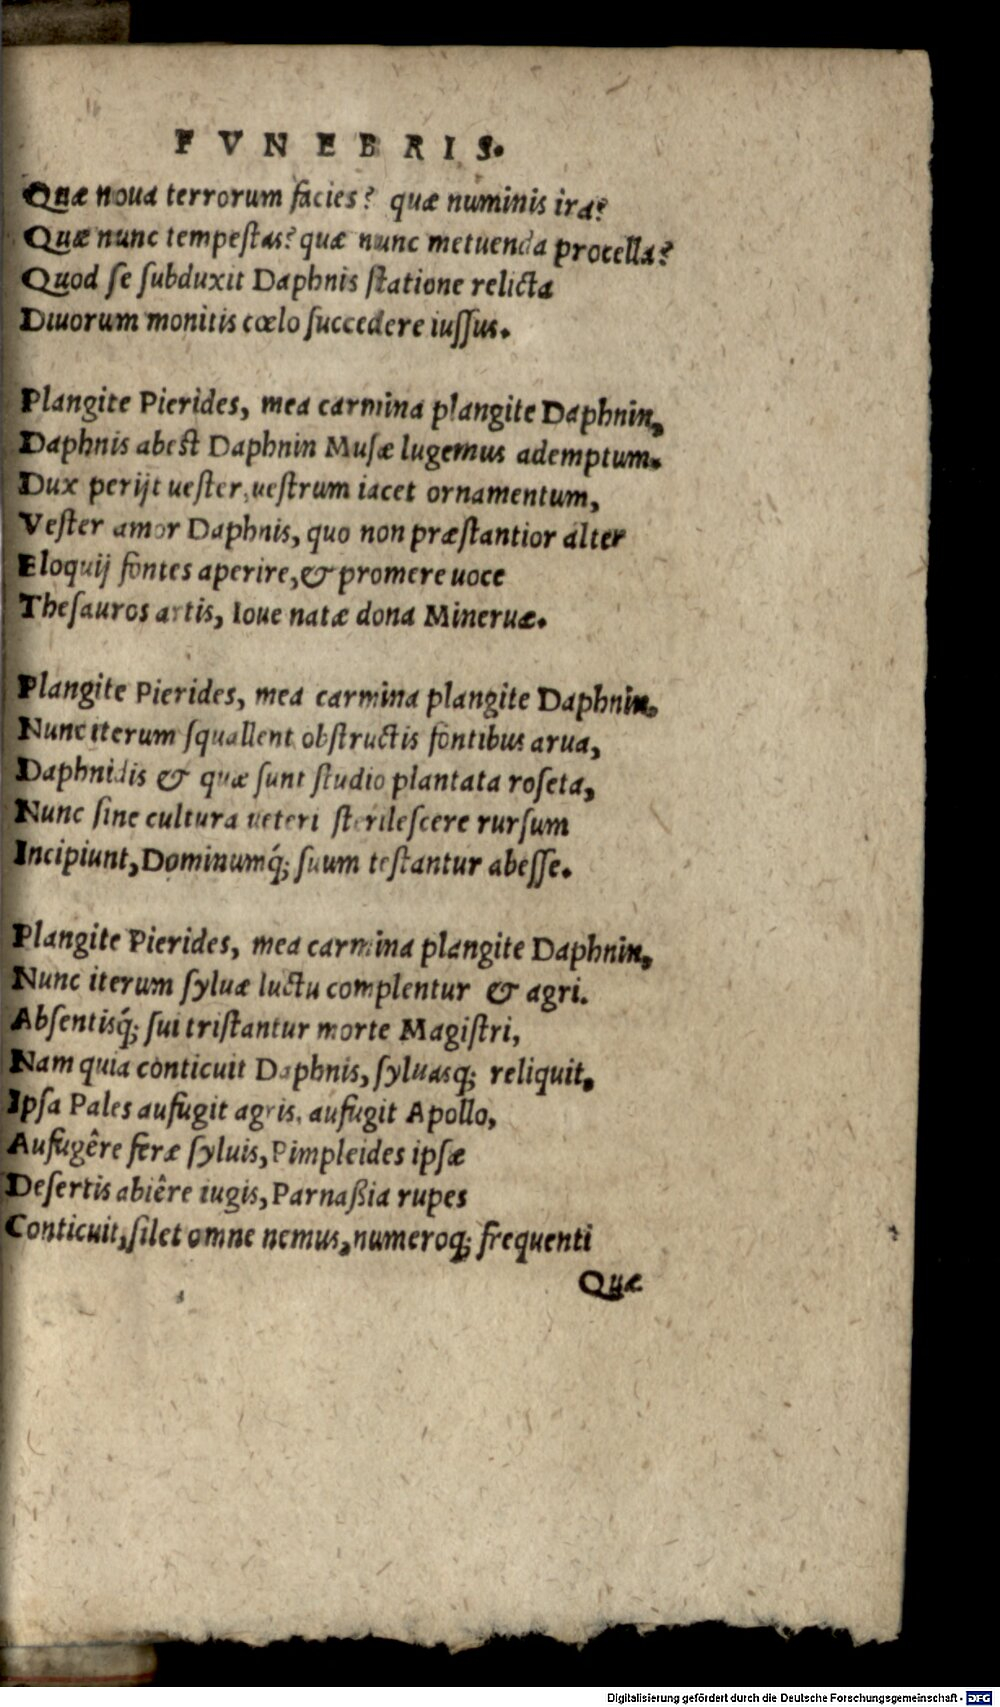 FVNEBRIS.
Quæ noua terrorum facies? quæ numinis ira?
Quæ nunc tempestas? quæ nunc metuenda procella?
Quod se subduxit Daphnis statione relicta
Diuorum monitis cœlo succedere iussus.
Plangite Pierides, mea carmina plangite Daphnin,
Daphnis abest Daphnin Musæ lugemus ademptum.
Dux perijt uester, uestrum iacet ornamentum,
Vester amor Daphnis, quo non præstantior alter
Eloquij fontes aperire, & promere uoce
Thesauros artis, Ioue natæ dona Mineruæ.
Plangite Pierides, mea carmina plangite Daphnin.
Nunc iterum squallent obstructis fontibus arua,
Daphnidis & quæ sunt studio plantata roseta,
Nunc sine cultura ueteri sterilescere rursum
Incipiunt, Dominumq́; suum testantur abesse.
Plangite Pierides, mea carmina plangite Daphnin,
Nunc iterum syluæ luctu complentur & agri.
Absentisq́; sui tristantur morte Magistri,
Nam quia conticuit Daphnis, syluasq; reliquit,
Ipsa Pales aufugit agris, aufugit Apollo,
Aufugêre feræ syluis, Pimpleides ipsæ
Desertis abiêre iugis, Parnaßia rupes
Conticuit, silet omne nemus, numeroq; frequenti
Quæ
Digitalisierung gefördert durch die Deutsche Forschungsgemeinschaft - DFG